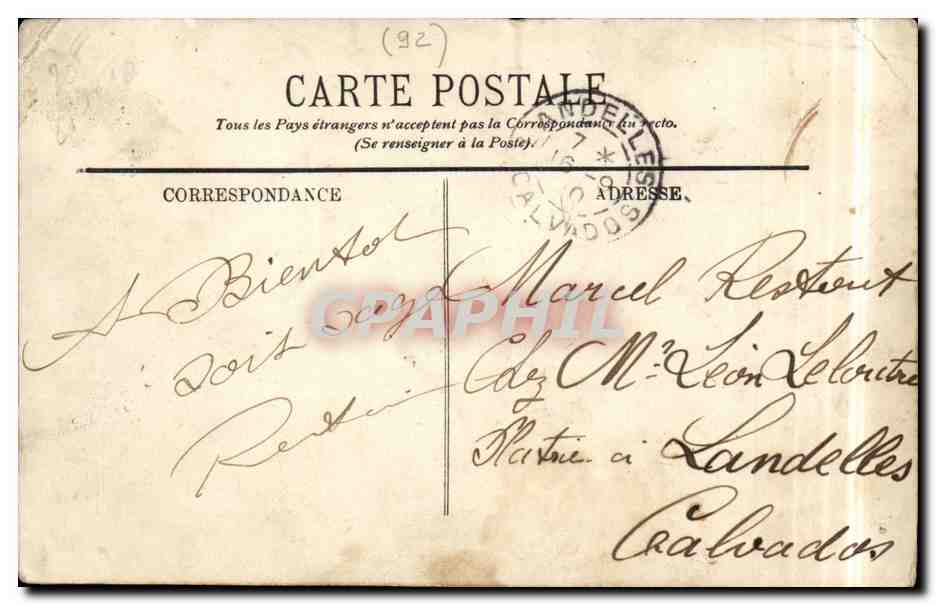 (92)
CARTE POSTALE
Tous les Pays étrangers n'acceptent pas la Correspondance au recto.
(Se renseigner à la Poste).
LANDELLES
7 *
16 - 9
CALVADOS
CORRESPONDANCE
A Bientot
sois sage
ADRESSE
Marcel Restout
Chez Mr Léon Leloutre
Platrier a Landelles
Calvados
CPAPHIL